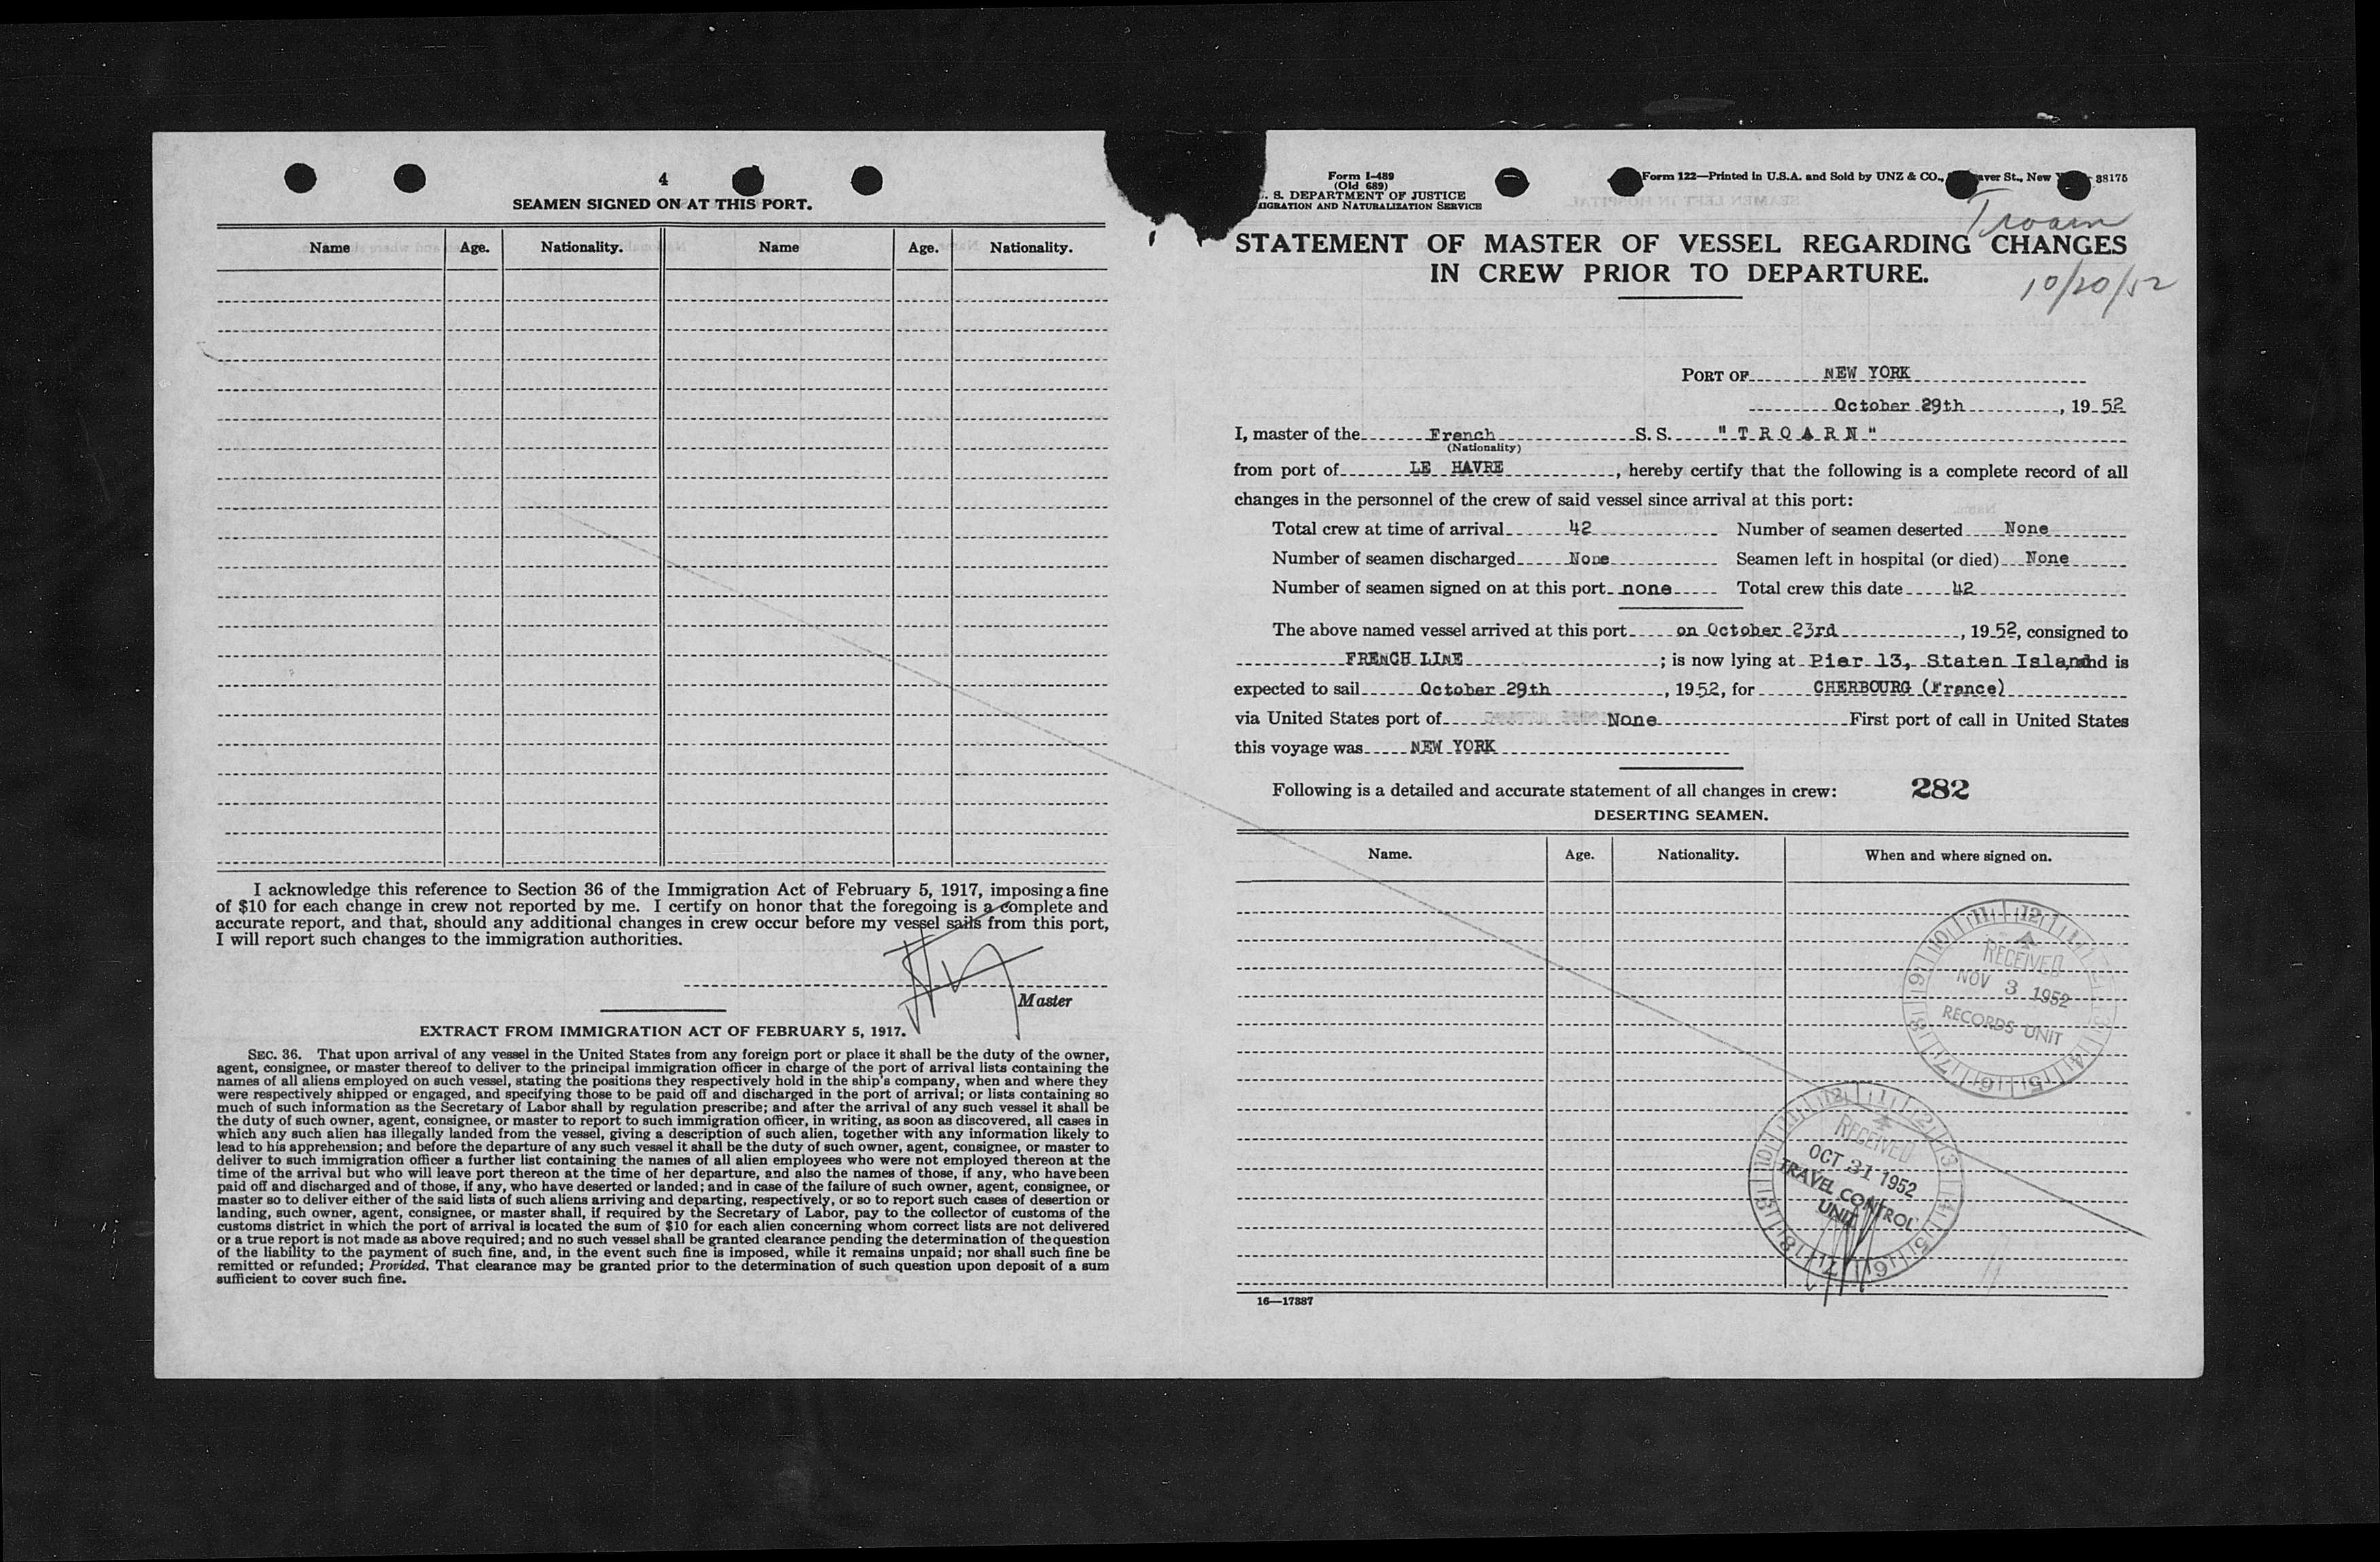 4
SEAMEN SIGNED ON AT THIS PORT.
Name Age. Nationality. Name Age. Nationality.
I acknowledge this reference to Section 36 of the Immigration Act of February 5, 1917, imposing a fine
of $10 for each change in crew not reported by me. I certify on honor that the foregoing is a complete and
accurate report, and that, should any additional changes in crew occur before my vessel sails from this port,
I will report such changes to the immigration authorities.
Master
EXTRACT FROM IMMIGRATION ACT OF FEBRUARY 5, 1917.
SEC. 36. That upon arrival of any vessel in the United States from any foreign port or place it shall be the duty of the owner,
agent, consignee, or master thereof to deliver to the principal immigration officer in charge of the port of arrival lists containing the
names of all aliens employed on such vessel, stating the positions they respectively hold in the ship's company, when and where they
were respectively shipped or engaged, and specifying those to be paid off and discharged in the port of arrival; or lists containing so
much of such information as the Secretary of Labor shall by regulation prescribe; and after the arrival of any such vessel it shall be
the duty of such owner, agent, consignee, or master to report to such immigration officer, in writing, as soon as discovered, all cases in
which any such alien has illegally landed from the vessel, giving a description of such alien, together with any information likely to
lead to his apprehension; and before the departure of any such vessel it shall be the duty of such owner, agent, consignee, or master to
deliver to such immigration officer a further list containing the names of all alien employees who were not employed thereon at the
time of the arrival but who will leave port thereon at the time of her departure, and also the names of those, if any, who have been
paid off and discharged and of those, if any, who have deserted or landed; and in case of the failure of such owner, agent, consignee, or
master so to deliver either of the said lists of such aliens arriving and departing, respectively, or so to report such cases of desertion or
landing, such owner, agent, consignee, or master shall, if required by the Secretary of Labor, pay to the collector of customs of the
customs district in which the port of arrival is located the sum of $10 for each alien concerning whom correct lists are not delivered
or a true report is not made as above required; and no such vessel shall be granted clearance pending the determination of the question
of the liability to the payment of such fine, and, in the event such fine is imposed, while it remains unpaid; nor shall such fine be
remitted or refunded; Provided, That clearance may be granted prior to the determination of such question upon deposit of a sum
sufficient to cover such fine.
Form I-489
(Old 689)
S. DEPARTMENT OF JUSTICE
IGRATION AND NATURALIZATION SERVICE
Form 122—Printed in U.S.A. and Sold by UNZ & CO., aver St., New 38175
Troarn
STATEMENT OF MASTER OF VESSEL REGARDING CHANGES
IN CREW PRIOR TO DEPARTURE.
10/20/52
PORT OF NEW YORK
October 29th, 19 52
I, master of the French S. S. "T R O A R N"
(Nationality)
from port of LE HAVRE, hereby certify that the following is a complete record of all
changes in the personnel of the crew of said vessel since arrival at this port:
Total crew at time of arrival 42 Number of seamen deserted None
Number of seamen discharged None Seamen left in hospital (or died) None
Number of seamen signed on at this port none Total crew this date 42
The above named vessel arrived at this port on October 23rd, 19 52, consigned to
FRENCH LINE; is now lying at Pier 13, Staten Island, and is
expected to sail October 29th, 19 52, for CHERBOURG (France)
via United States port of None First port of call in United States
this voyage was NEW YORK
Following is a detailed and accurate statement of all changes in crew: 282
DESERTING SEAMEN.
Name. Age. Nationality. When and where signed on.
11 12 1 2 3 4 5 6 7 8 9 10
RECEIVED
NOV 3 1952
RECORDS UNIT
12 1 2 3 4 5 6 7 8 9 10 11
RECEIVED
OCT 31 1952
TRAVEL CONTROL
UNIT
16—17387